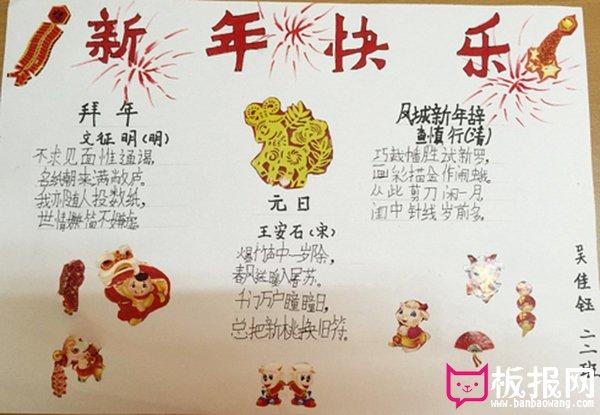 新年快乐
拜年
文征明(明)
不求见面惟通谒,
名纸朝来满敝庐。
我亦随人投数纸,
世情嫌简不嫌虚。
元日
王安石(宋)
爆竹声中一岁除,
春风送暖入屠苏。
千门万户瞳瞳日,
总把新桃换旧符。
凤城新年辞
查慎行(清)
巧裁幡胜试新罗,
画彩描金作闹蛾。
从此剪刀闲一月,
闺中针线岁前多。
吴佳钰
二二班
板报网
www.banbaowang.com